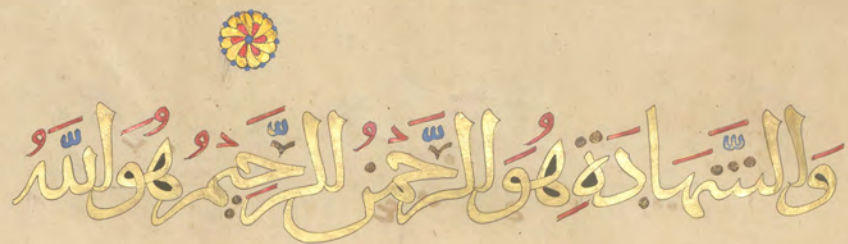 وَالشَّهَادَةِ هُوَ الرَّحْمَنُ الرَّحِيمُ هُوَ اللَّهُ